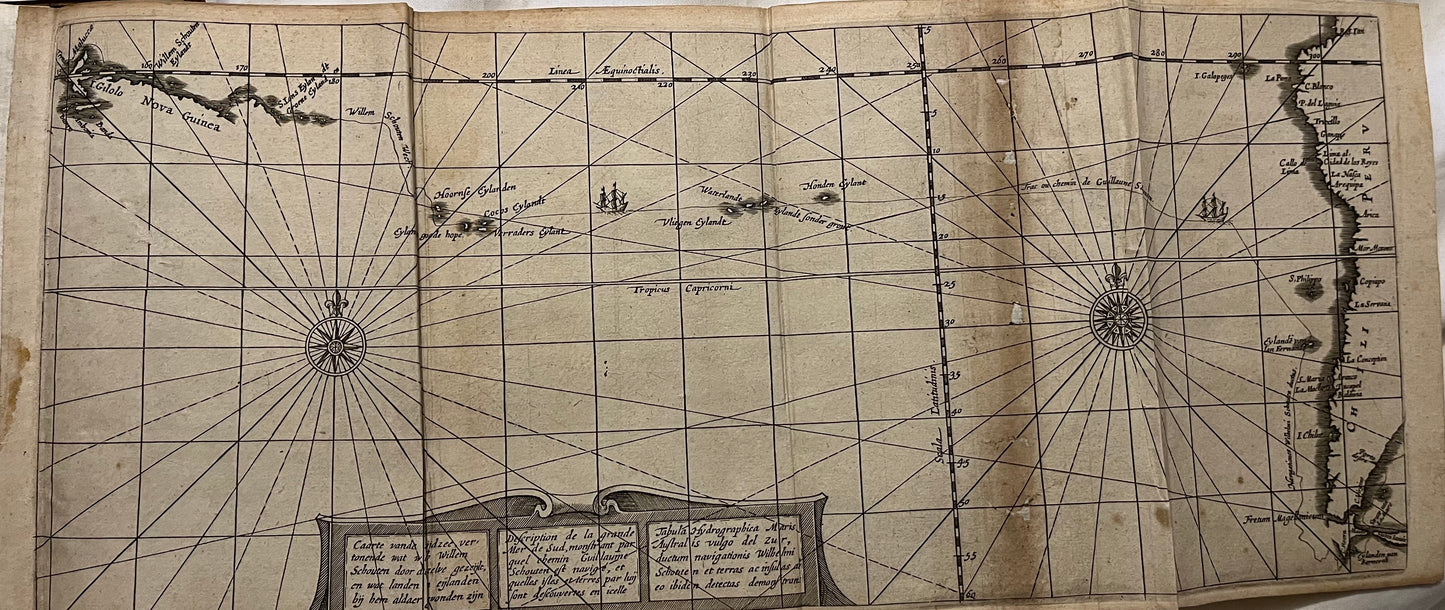 Molucca
I Gilolo
Nova Guinea
160
Willem Schouten
Eylandt
170
180
Willem
Schouten Wech
200
Linea Æquinoctialis
220
230
240
250
260
270
280
290
300
5
I. Galapeges
La Puna
C. Blanco
P. del Laguna
Truxillo
Lima al.
Ciudad de los Reyes
Callo de
Lima
La Nasca
Arequipa
Arica
PERV
5
10
15
20
25
30
35
40
45
50
55
60
Hoornse Eylanden
Cocos Eylandt
goede hope
Verraders Eylant
Waterlandt
Vliegen Eylandt
Eylandt sonder gront
Honden Eylant
Trac ou chemin de Guillaume S.
Tropicus Capricorni
Scala Latitudinis
S. Philippo
Copiapo
La Servana
Eylandt van
Ian Fernando
La Conception
S. Maria
Arauco
La Mocha
Baldivia
CHILI
I. Chiloe
Fretum Magellanicum
Eylanden van
Barnevelt
Caarte vande
ver-
tonende wat
Willem
Schouten door
gezeijlt,
en wat landen
eijlanden
bij hem aldaer
vonden zijn
Description de la grande
Mer de Sud, monstrant par
quel chemin Guillaume
Schouten est navigé, et
quelles isles et terres par luij
sont descouvertes en icelle
Tabula Hydrographica Maris
Australis vulgo del Zur,
ductum navigationis Wilhelmi
Schouten et terras ac insulas
eo ibidem detectas demonstrans